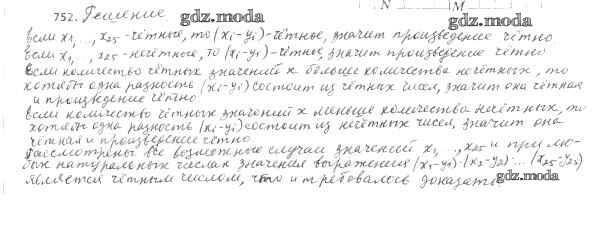 N M
752. Решение gdz.moda
gdz.moda
если x₁, .., x₂₅ - чётные, то (xᵢ-yᵢ) - чётное, значит произведение чётно
Если x₁, .., x₂₅ - нечётные, то (xᵢ-yᵢ) - чётное, значит произведение чётно
Если количество чётных значений x больше количества нечётных, то
хотябы одна разность (xᵢ-yᵢ) состоит из чётных чисел, значит она чётная
и произведение чётно. gdz.moda
если количество чётных значений x меньше количества нечётных, то
хотябы одна разность (xᵢ-yᵢ) состоит из нечётных чисел, значит она
чётная и произведение чётно. gdz.moda
Рассмотрены все возможные случаи значений x₁, .., x₂₅ и при лю-
бых натуральных числах значения выражения (x₁-y₁)·(x₂-y₂)·...·(x₂₅-y₂₅)
является чётным числом, что и требовалось доказать
gdz.moda